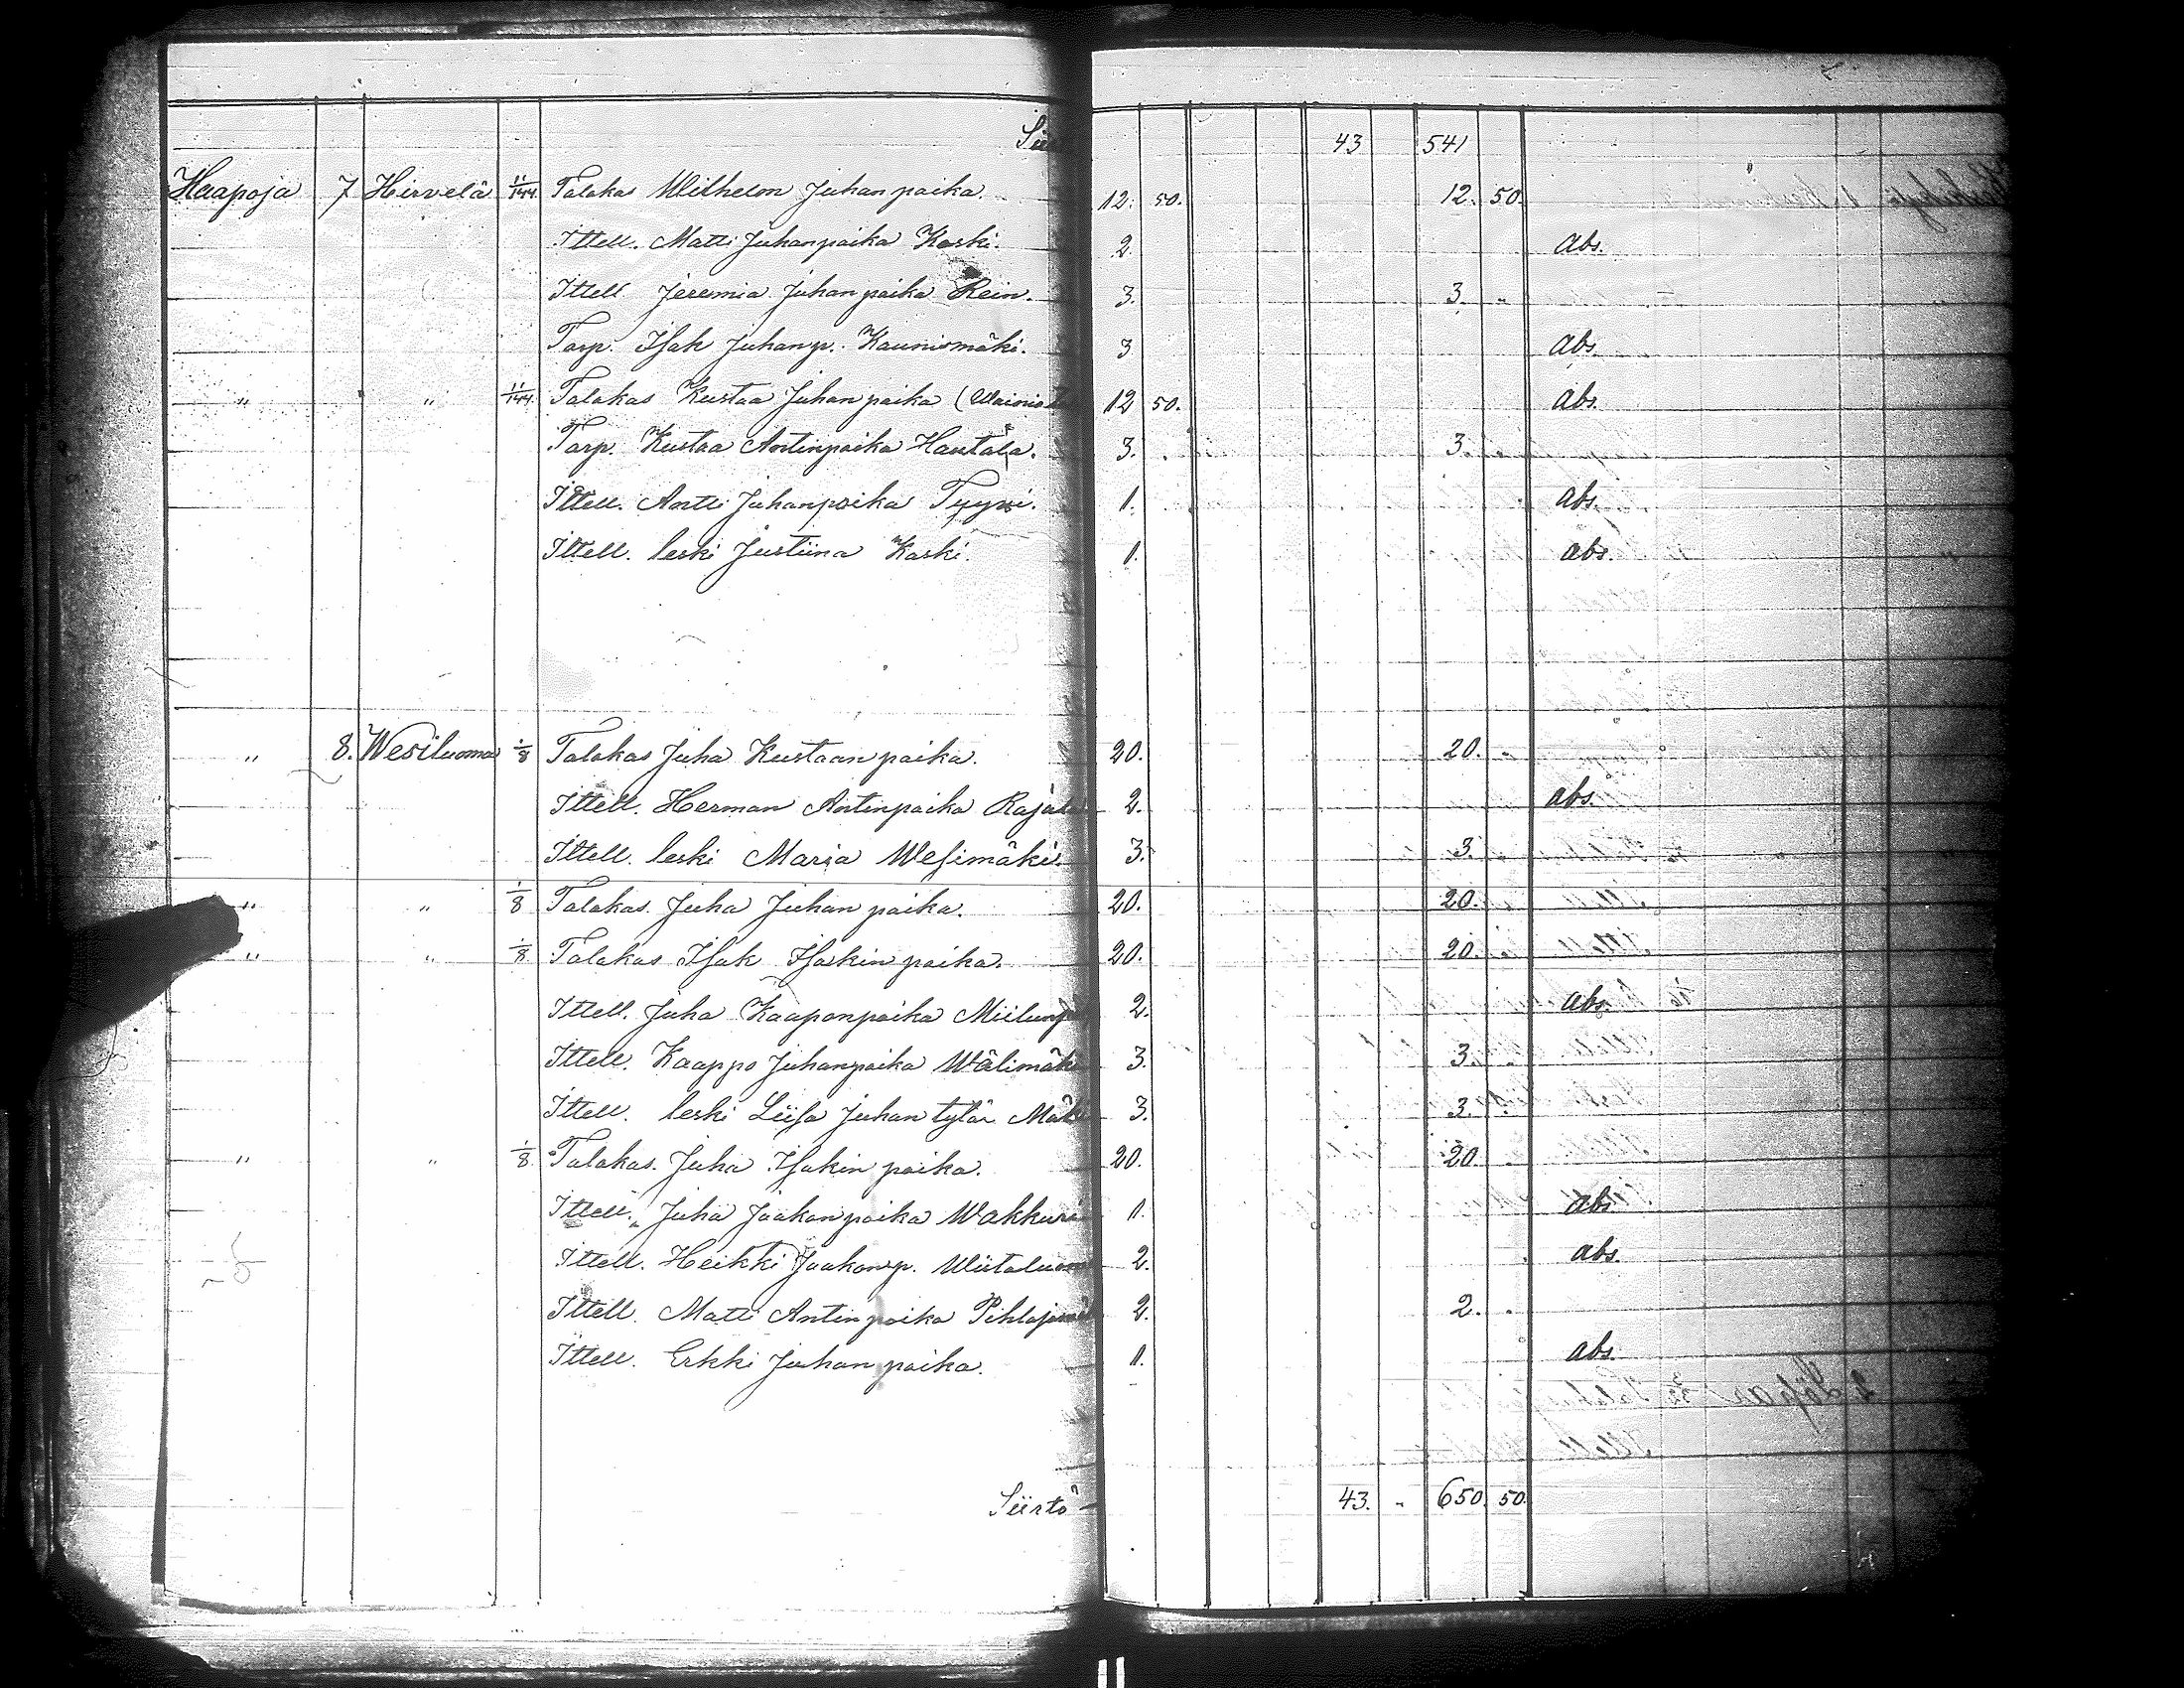 43 541
Haapoja 7 Hirvelä 11/144 Talokas Wilhelm Juhan poika. 12. 50. 12. 50.
Ittell. Matti Juhanpoika Koski. 2. abs.
Ittell Jeremia Juhanpoika Rein. 3. 3. "
Torp. Isak Juhanp. Kaunismäki. 3 abs.
" " 11/144 Talokas Kustaa Juhanpoika 12 50. abs.
Torp. Kustaa Antinpoika Hautala. 3. 3. "
Ittell. Antti Juhanpoika Tyyni. 1. abs.
Ittell. leski Justiina Koski. 1. abs.
" 8. Wesiluoma 1/8 Talokas Juha Kustaan poika. 20. 20. "
Ittell. Herman Antinpoika 2. abs.
Ittell. leski Maria Wesimäki. 3. 3. "
" " 1/8 Talokas. Juha Juhan poika. 20. 20. "
" " 1/8 Talokas Isak Isakin poika. 20. 20. "
Ittell. Juha Kaaponpoika 2. abs.
Ittell. Kaappo Juhanpoika Wälimäki 3. 3. "
Ittell. leski Liisa Juhan tytär 3. 3. "
" " 1/8 Talokas. Juha Isakin poika. 20. 20. "
Ittell. Juha Jaakonpoika Wakkuri 1. abs
Ittell. Heikki Jaakonp. 2. abs.
Ittell. Matti Antinpoika 2. 2. "
Ittell. Erkki Juhan poika. 1. abs.
Siirto 43. " 650. 50.